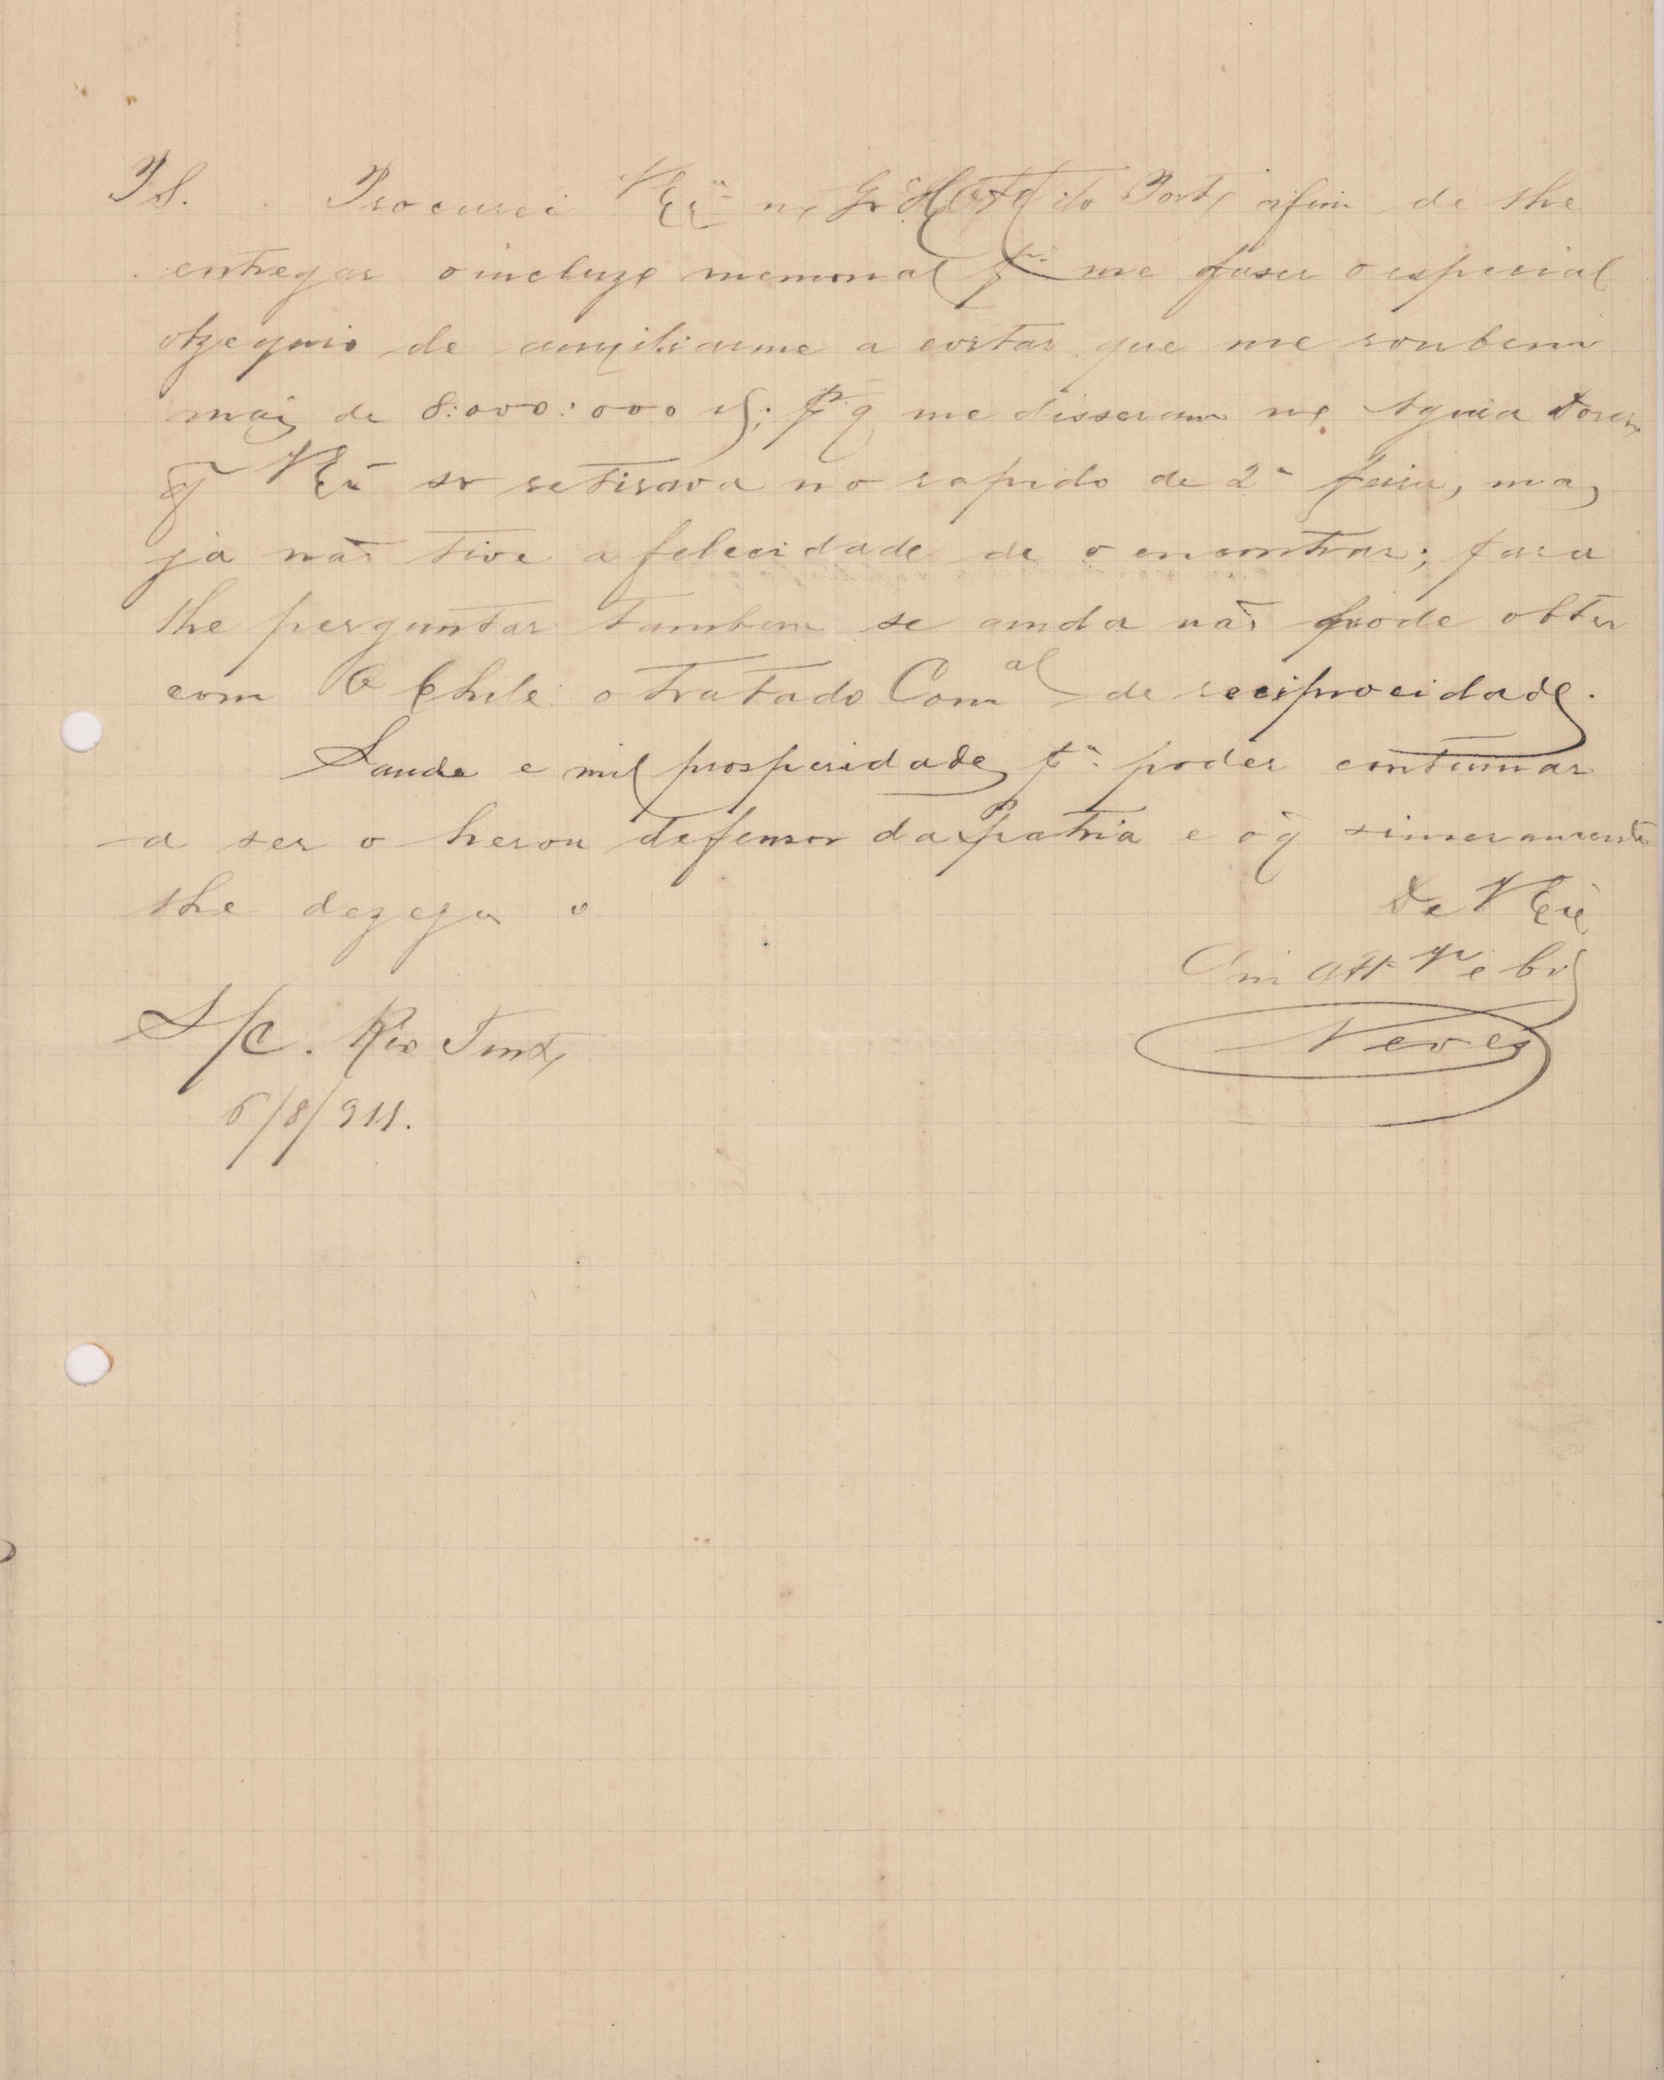 PS. Procurei VExª no Gr. Hotel do Porto afim de lhe
entregar o incluzo memorial pª me faser o especial
obzequio de auxiliarme a evitar que me roubem
mais de 8:000:000 rs; pr q me disseram no Aguia Douro
q VExª so retirava no rapido de 2ª feira, mas
já não tive a felecidade de o encontrar; para
lhe perguntar tambem se ainda não pode obter
com o Chile o tratado Comal de reciprocidade.
Saude e mil prosperidades pª poder continuar
a ser o heroe defensor da patria e o q sinceramente
lhe dezeja o
De VExª
Am att Vor e
Neves
S/c. Rio Tinto
6/8/911.